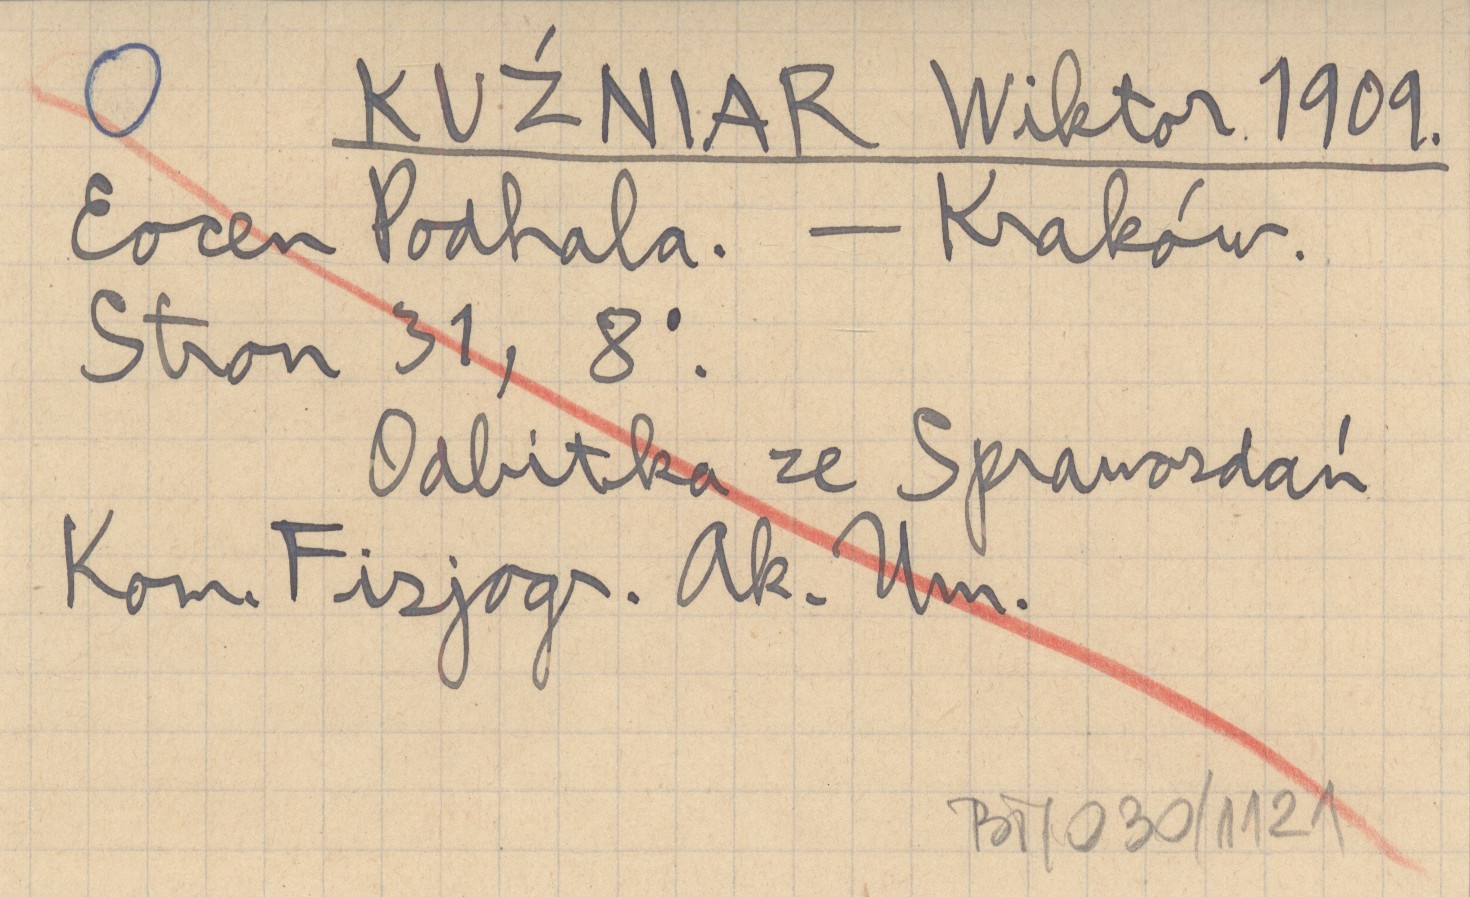 KUŹNIAR Wiktor 1909.
Eocen Podhala. — Kraków.
Stron 31, 8°.
Odbitka ze Sprawozdań
Kom. Fizjogr. Ak. Um.
BT/030/1121